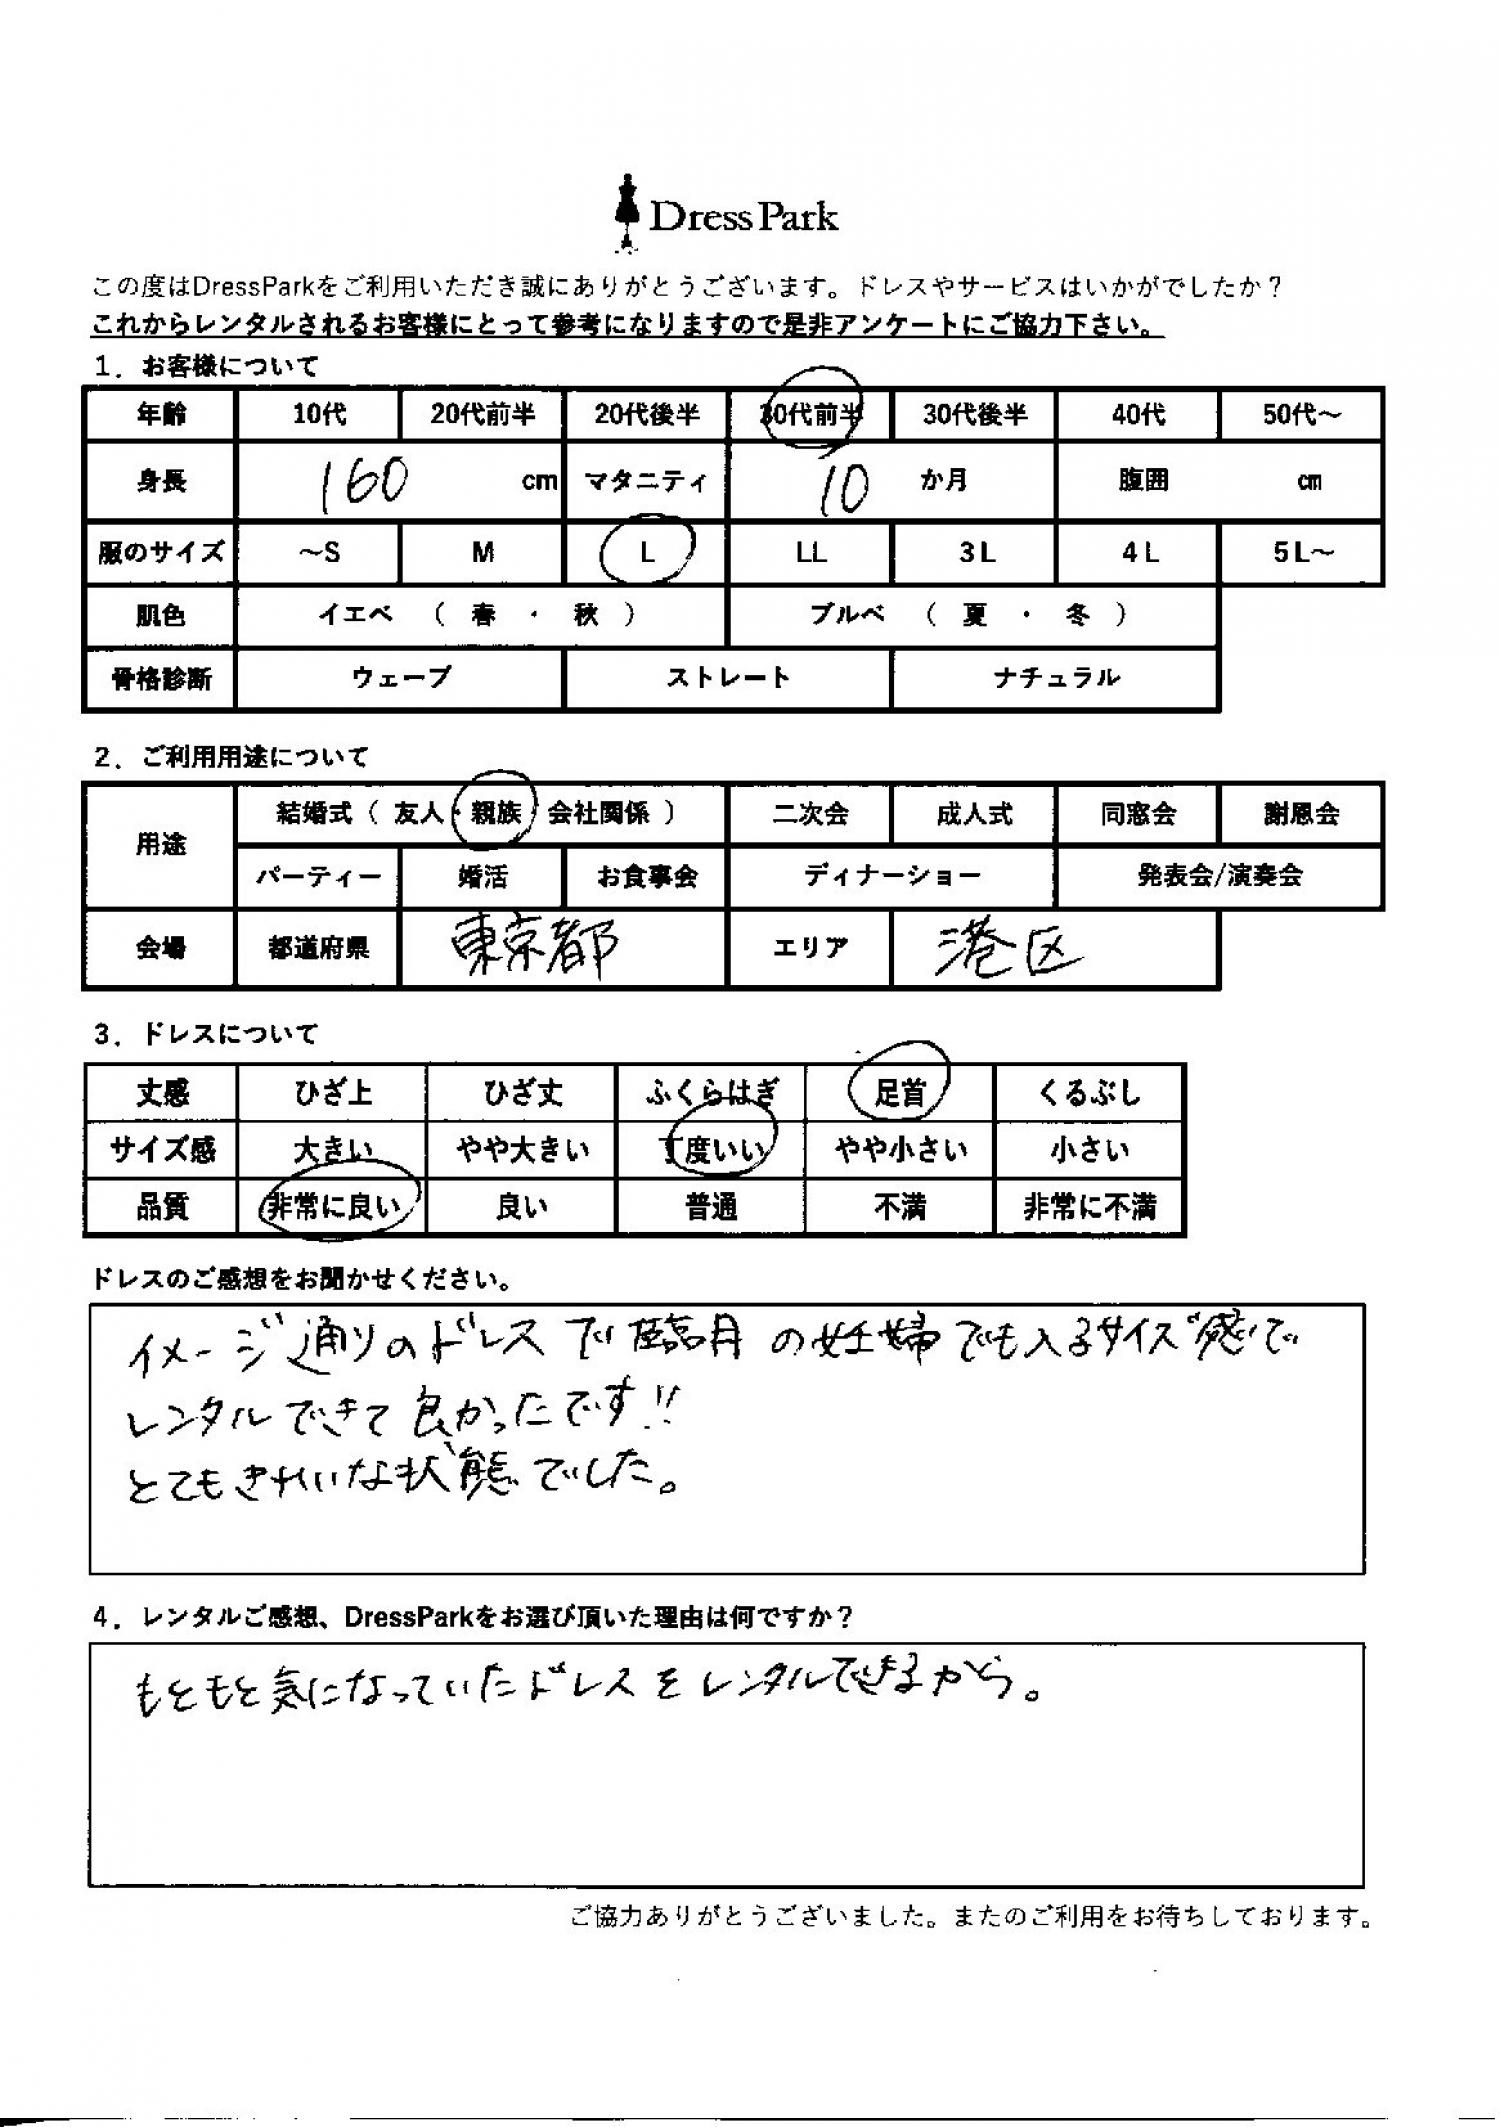 Dress Park
この度はDressParkをご利用いただき誠にありがとうございます。ドレスやサービスはいかがでしたか？
これからレンタルされるお客様にとって参考になりますので是非アンケートにご協力下さい。
1．お客様について
年齢 10代 20代前半 20代後半 30代前半 30代後半 40代 50代～
身長 160 cm マタニティ 10 か月 腹囲 ㎝
服のサイズ ～S M L LL 3L 4L 5L～
肌色 イエベ （ 春 ・ 秋 ） ブルベ （ 夏 ・ 冬 ）
骨格診断 ウェーブ ストレート ナチュラル
2．ご利用用途について
用途 結婚式（ 友人・親族・会社関係 ） 二次会 成人式 同窓会 謝恩会
パーティー 婚活 お食事会 ディナーショー 発表会/演奏会
会場 都道府県 東京都 エリア 港区
3．ドレスについて
丈感 ひざ上 ひざ丈 ふくらはぎ 足首 くるぶし
サイズ感 大きい やや大きい 丁度いい やや小さい 小さい
品質 非常に良い 良い 普通 不満 非常に不満
ドレスのご感想をお聞かせください。
イメージ通りのドレスで臨月の妊婦でも入るサイズ感で
レンタルできて良かったです!!
とてもきれいな状態でした。
4．レンタルご感想、DressParkをお選び頂いた理由は何ですか？
もともと気になっていたドレスをレンタルできるから。
ご協力ありがとうございました。またのご利用をお待ちしております。